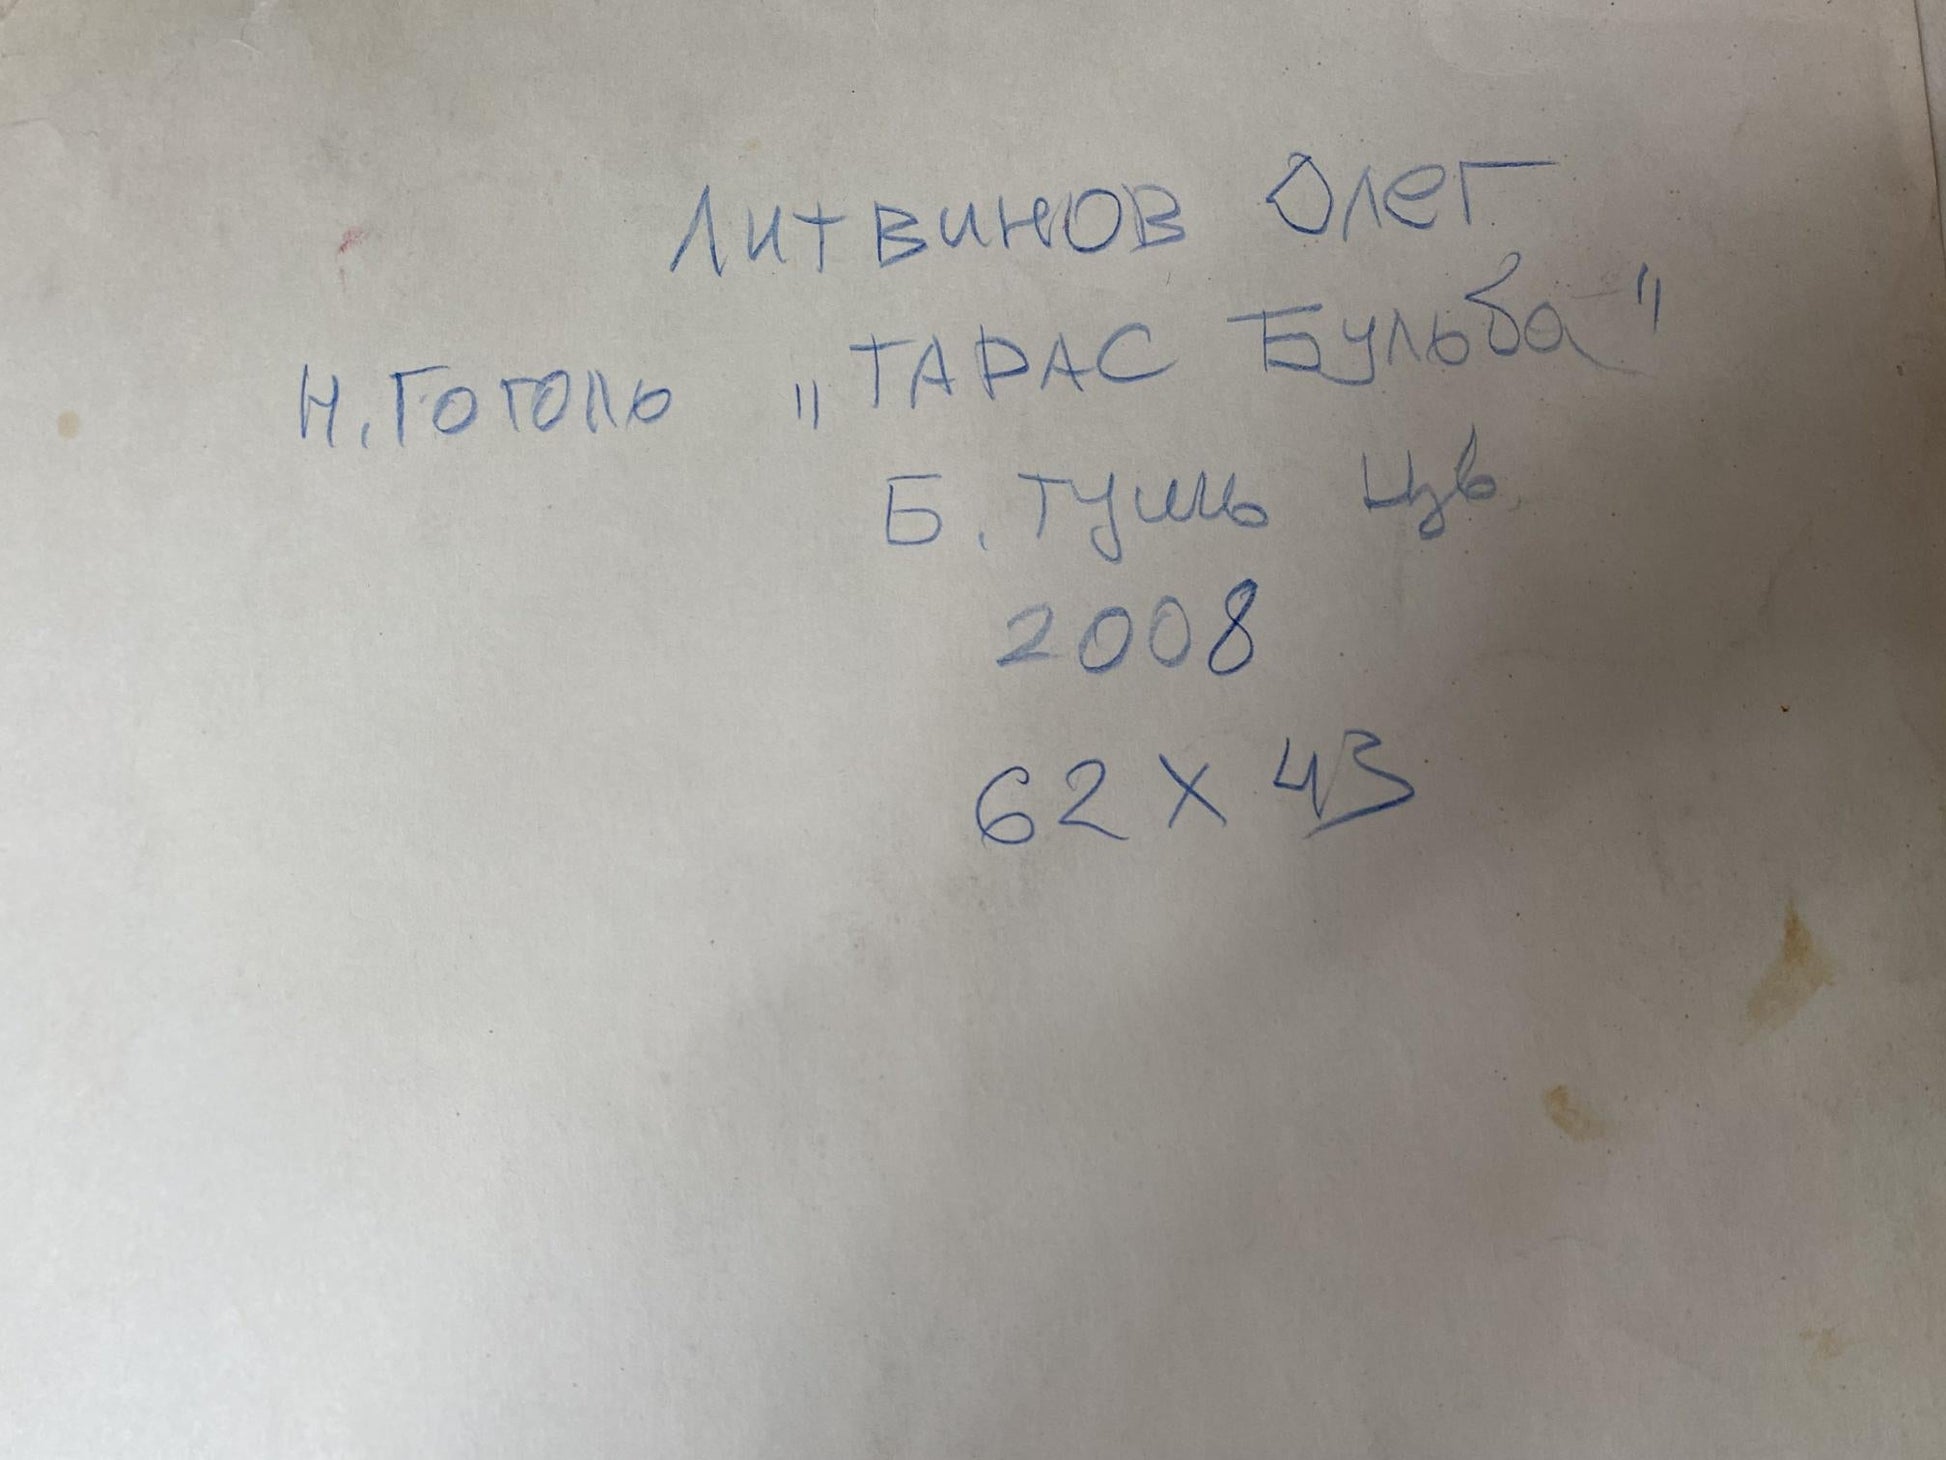 Литвинов Олег
Н. Гоголь „Тарас Бульба"
Б. тушь цв.
2008
62 х 43